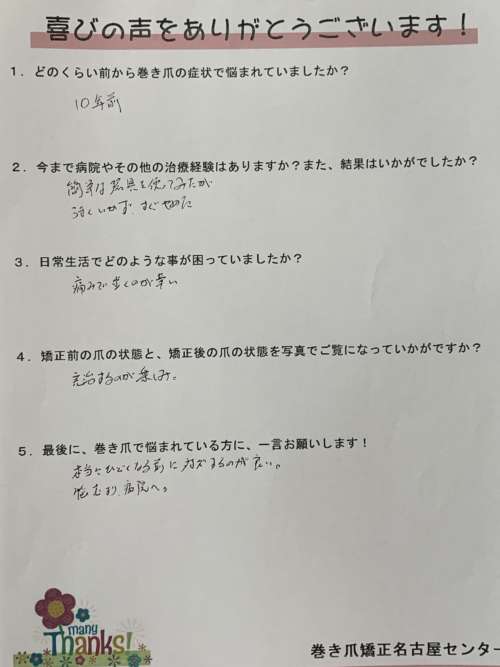 喜びの声をありがとうございます！
1．どのくらい前から巻き爪の症状で悩まれていましたか？
10年前
2．今まで病院やその他の治療経験はありますか？また、結果はいかがでしたか？
簡単な器具を使ってみたが
うまくいかず、すぐやめた
3．日常生活でどのような事が困っていましたか？
痛みで歩くのが辛い
4．矯正前の爪の状態と、矯正後の爪の状態を写真でご覧になっていかがですか？
完治するのが楽しみ。
5．最後に、巻き爪で悩まれている方に、一言お願いします！
本当にひどくなる前に対処するのが良い。
悩むより病院へ。
many
Thanks!
巻き爪矯正名古屋センター